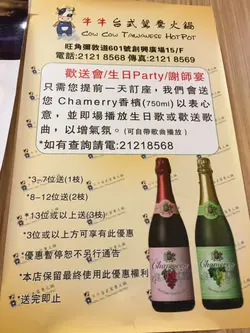 牛牛台式鴛鴦火鍋
COW COW TAIWANESE HOTPOT
旺角彌敦道601號創興廣場15/F
電話:2121 8568 傳真:2121 8569
歡送會/生日Party/謝師宴
只需您提前一天訂座，我們會送
您 Chamerry香檳(750ml)以表心
意，並即場播放生日歌或歡送歌
曲，以增氣氛。(可自帶歌曲播放)
*如有查詢請電:21218568
*3~7位送(1枝)
*8~12位送(2枝)
*13位或以上送(3枝)
*3位或以上方可享有此優惠
*優惠暫停恕不另行通告
*本店保留最終使用此優惠權利
*送完即止
Chamerry
Chamerry